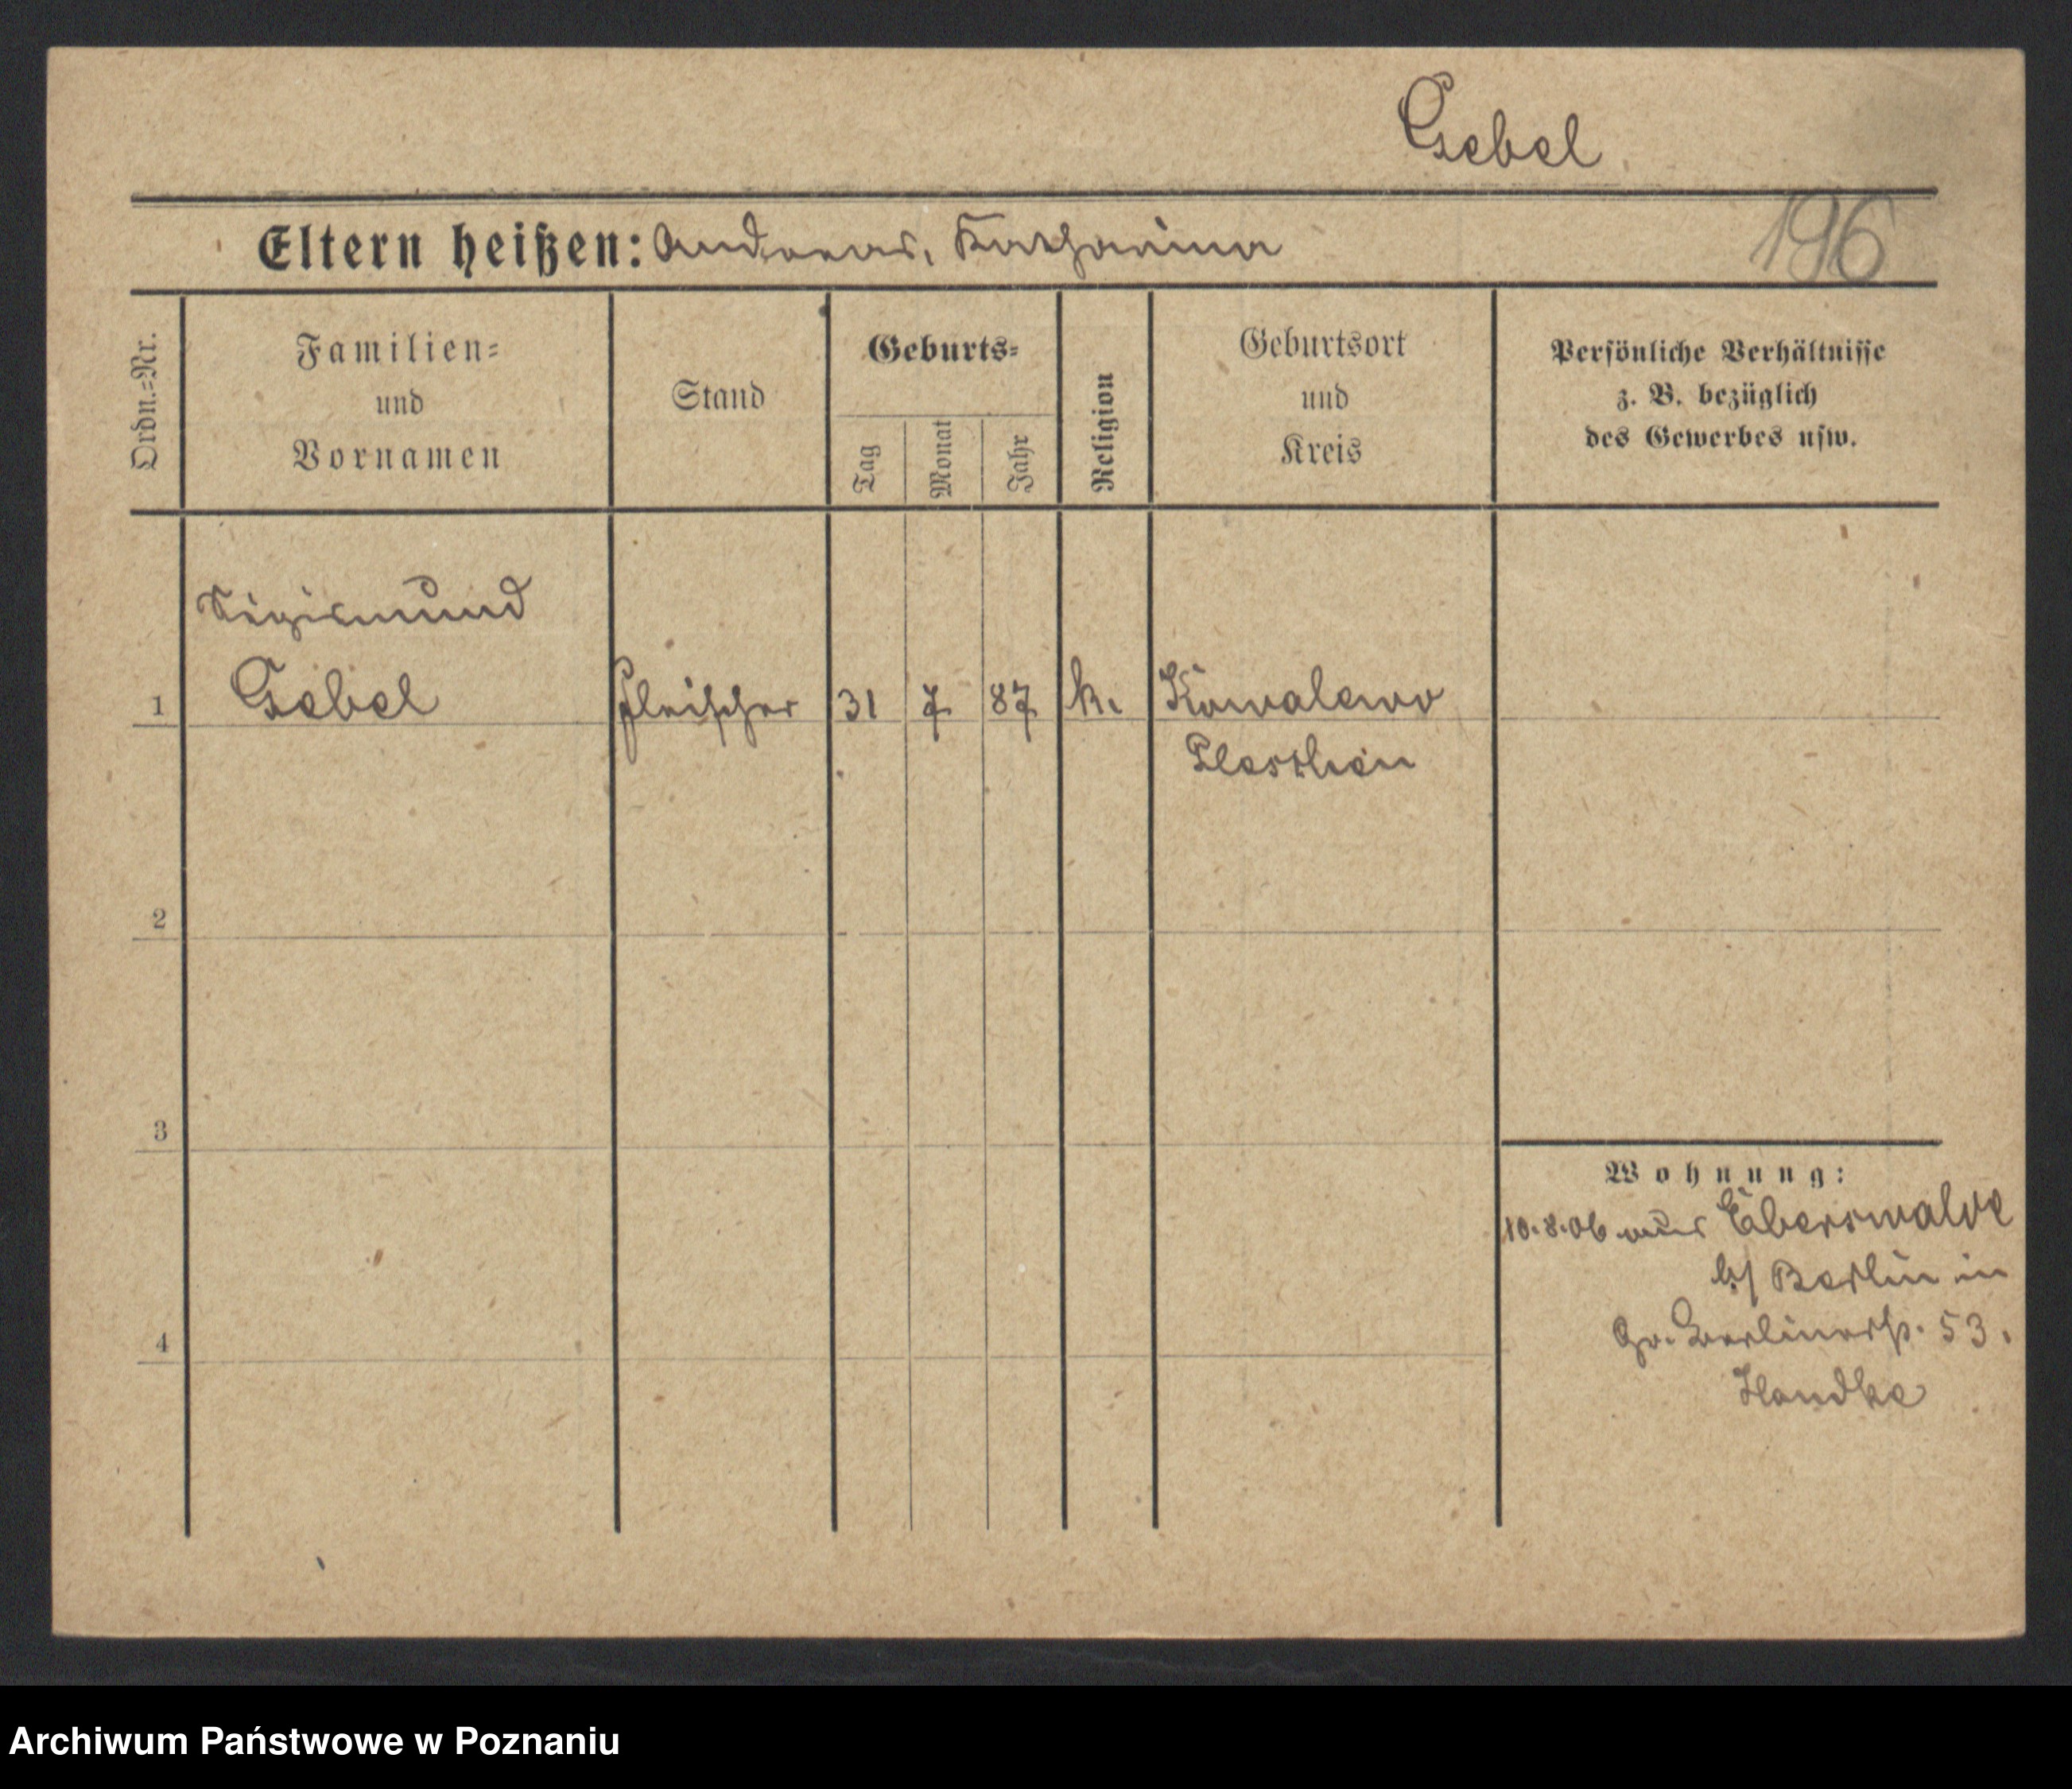 Gebel
Eltern heißen: Andreas, Katharina
196
Ordn.=Nr.
Familien=
und
Vornamen
Stand
Geburts=
Tag
Monat
Jahr
Religion
Geburtsort
und
Kreis
Persönliche Verhältnisse
z. B. bezüglich
des Gewerbes usw.
Sigismund
1 Gebel Fleischer 31 7 87 k. Kowalewo
Pleschen
2
3
Wohnung:
10.8.06 aus Eberswalde
b/ Berlin in
Gr. Berlinerstr. 53.
4
Handke
Archiwum Państwowe w Poznaniu